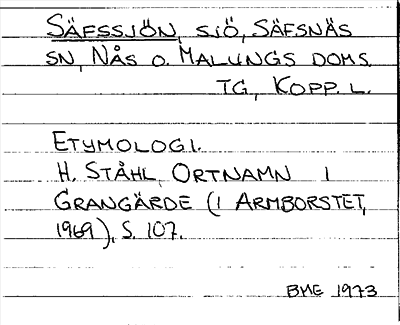 SÄFSSJÖN, SJÖ, SÄFSNÄS
SN, NÅS O. MALUNGS DOMS.
TG., KOPP. L.
ETYMOLOGI.
H. STÅHL, ORTNAMN I
GRANGÄRDE (I ARMBORSTET,
1969), S. 107.
BME 1973